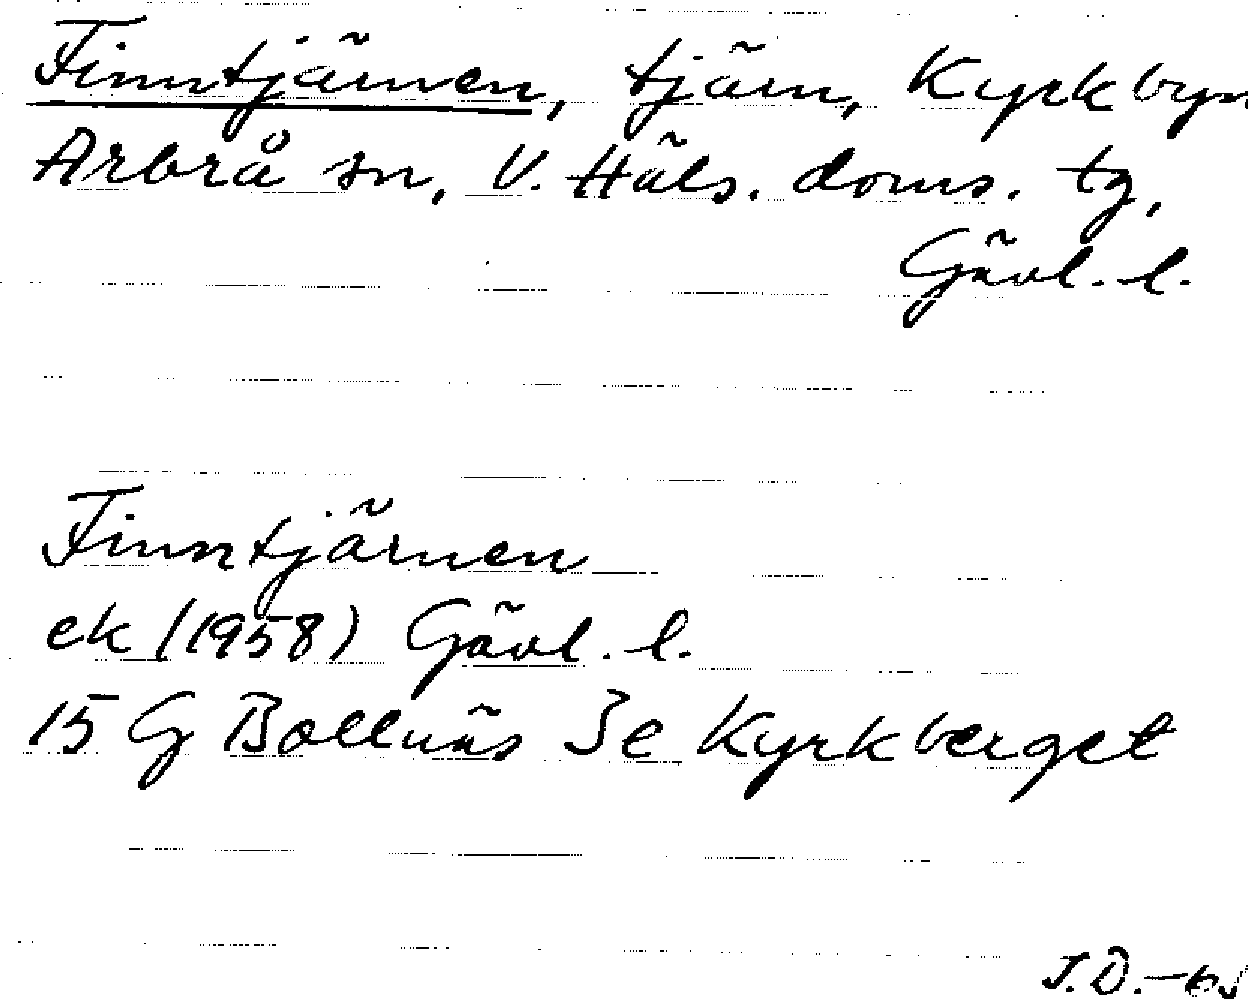 Finntjärnen, tjärn, Kyrkbyn
Arbrå sn, V. Häls. doms. tg,
Gävl. l.
Finntjärnen
ek (1958) Gävl. l.
15 G Bollnäs 3e Kyrkberget
J.D.